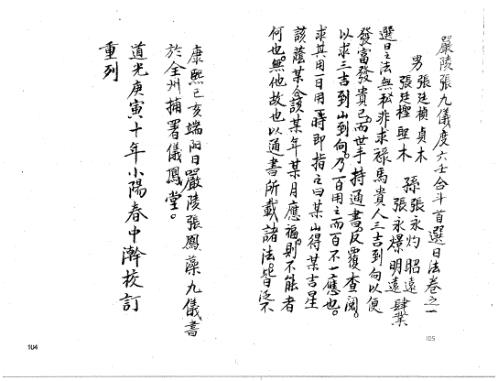 嚴陵張九儀度六壬合斗首選日法卷之一
男張廷楨貞木 孫張永灼昭遠
張廷樫聖木 張永爆明遠肆業
選日之法無私非求祿馬貴人三吉到向以便
發富發貴已而世手持通書反覆查閱
以求三吉到山到向乃百用之而百不一應也
求其用一百用一時即指之曰某山得某吉星
該蔭某命該某年某月應福則不能者
何也無他故也以通書所載諸法皆泛不
105
康熙己亥端陽日嚴陵張鳳藻九儀書
於全州捕署儀鳳堂
道光庚寅十年小陽春中澣校訂
重列
104